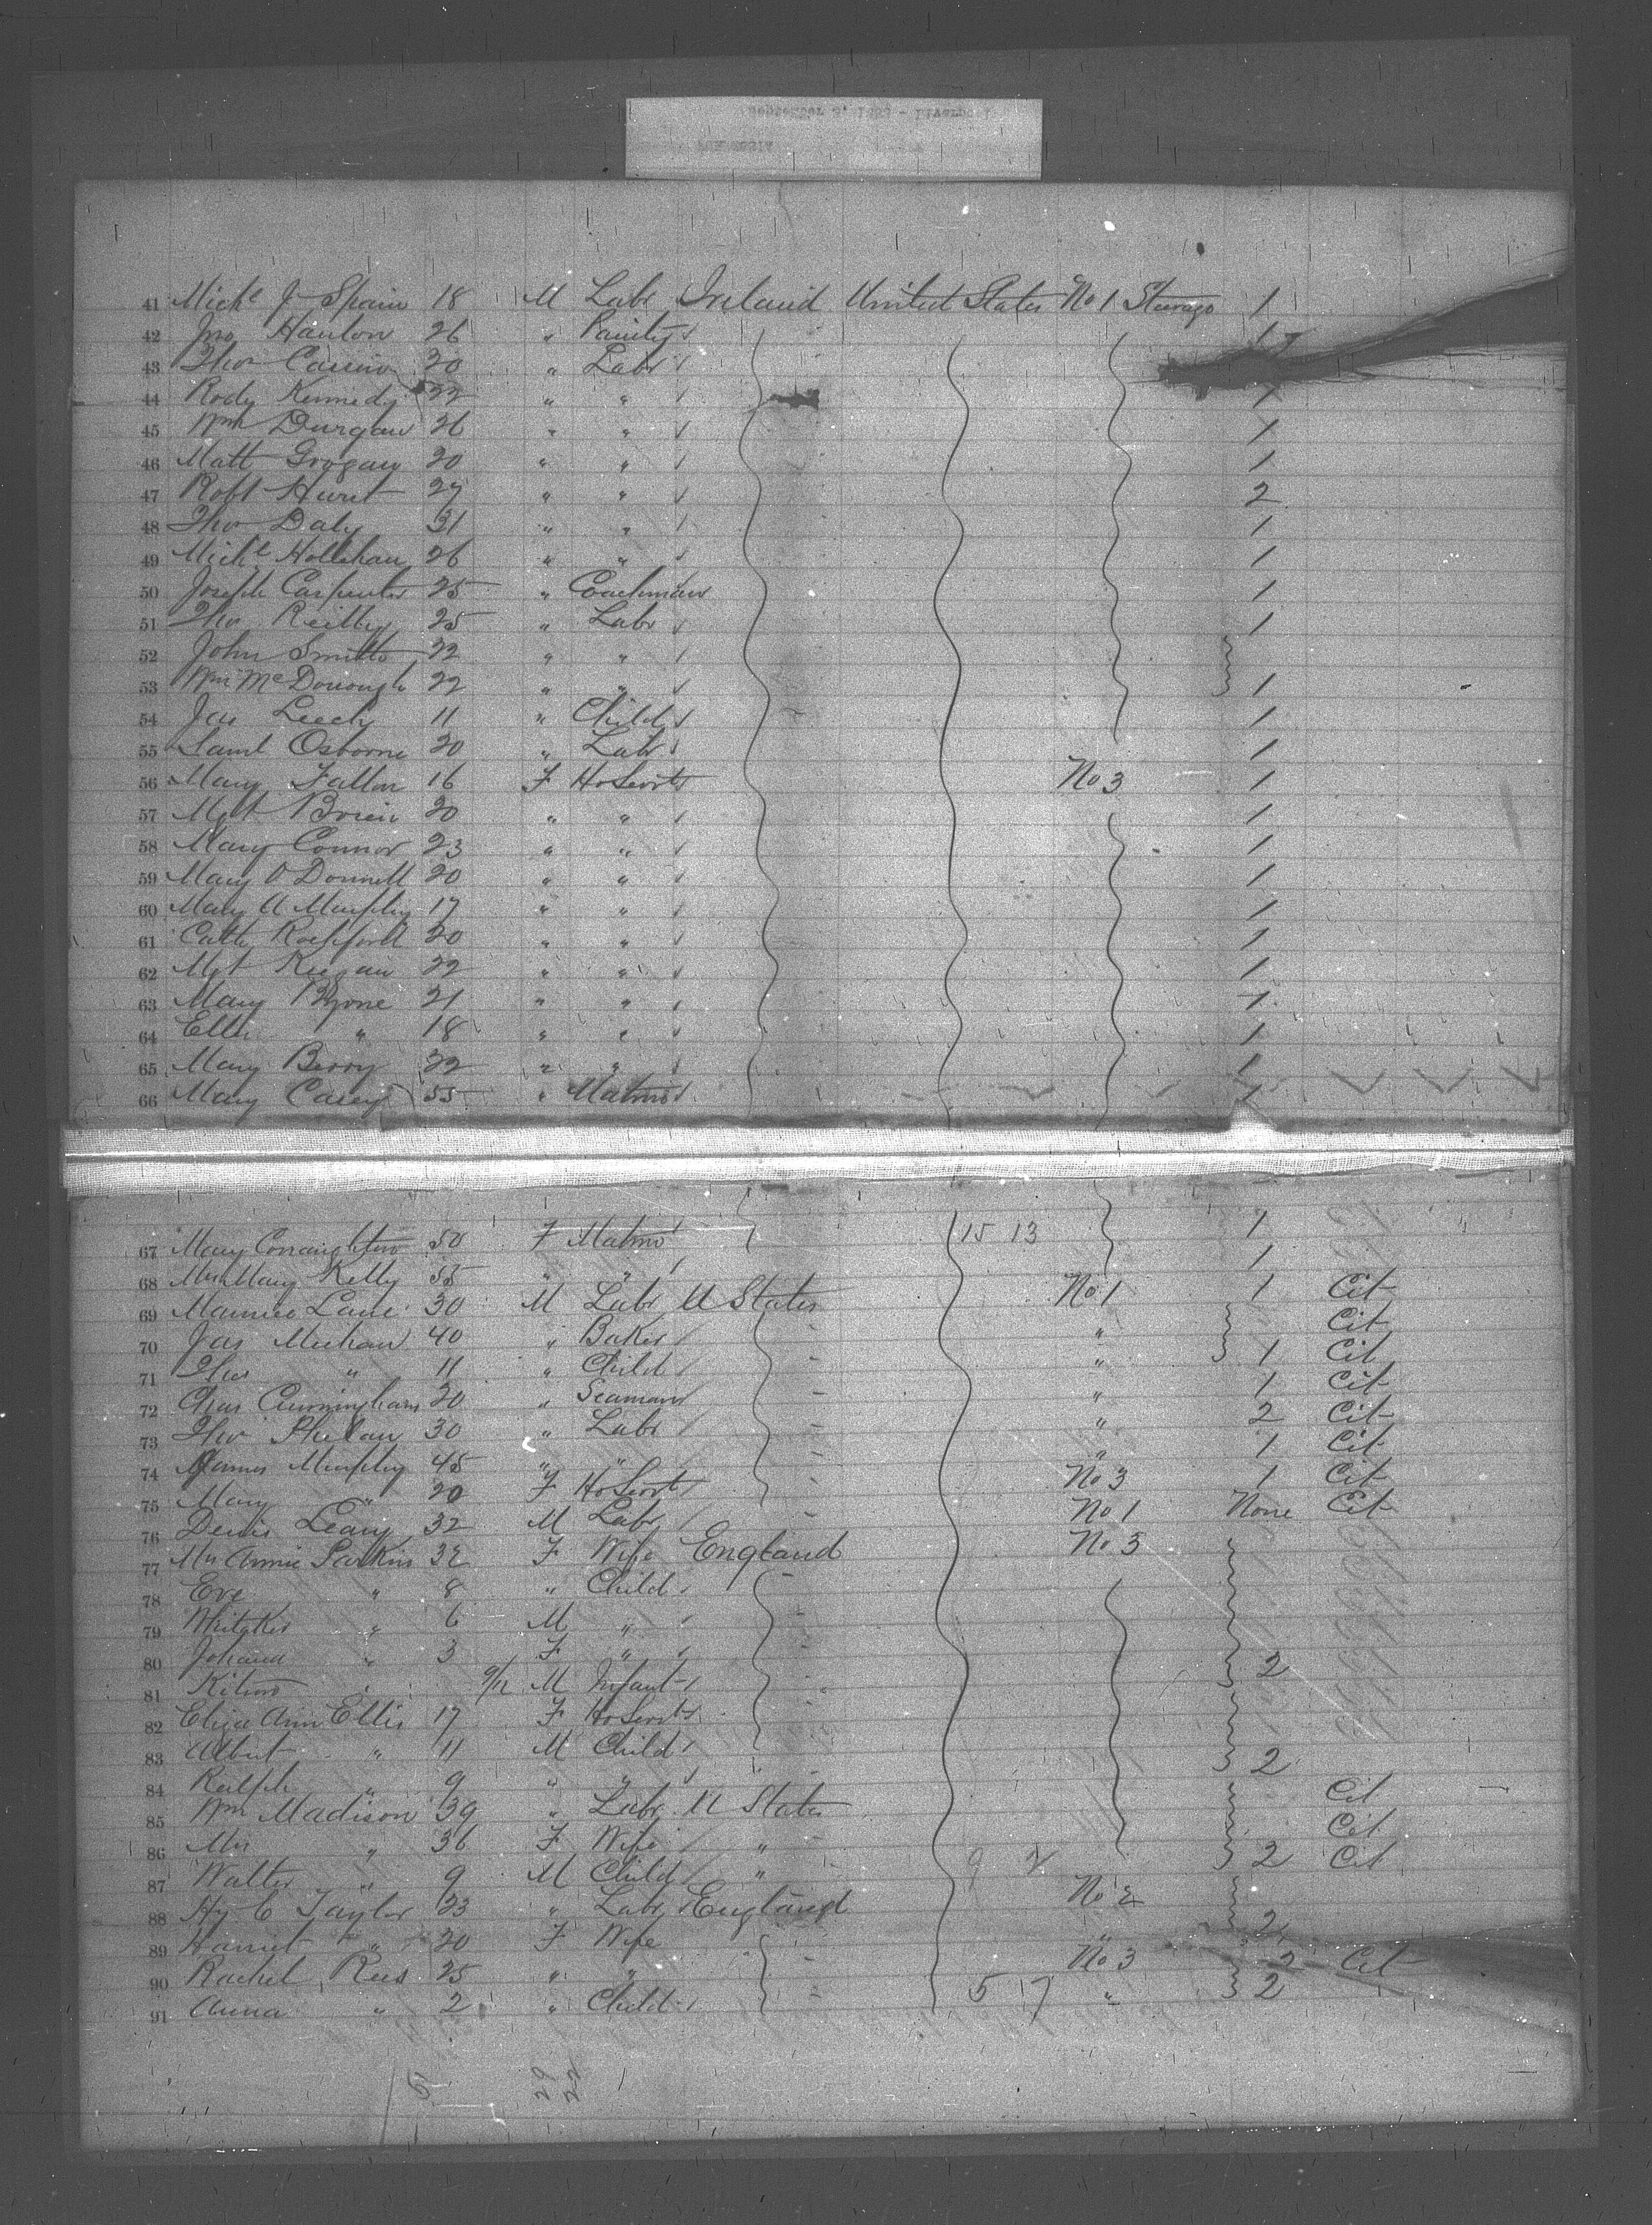 41 Michl J Spain 18 M Labr Ireland United States No 1 Steerage 1
42 Jno Hanlon 26 " Painter 1
43 Thos 20 " Labr
44 Rody Kennedy 22 " " 1
45 Wm Durgan 26 " " 1
46 Matt Grogan 20 " " 1
47 Robt Hurst 27 " " 2
48 Thos Daly 31 " " 1
49 Michl Hollehan 26 " " 1
50 Joseph Carpenter 25 " Coachman 1
51 Thos Reilly 25 " Labr 1
52 John Smith 22 " "
53 Wm McDonough 22 " " 1
54 Jas Leech 11 " Child 1
55 Saml Osborne 20 " Labr 1
56 Mary Fallon 16 F HoServt No 3 1
57 Mgt Brien 20 " " 1
58 Mary Connor 23 " " 1
59 Mary O Donnell 20 " " 1
60 Mary A Murphy 17 " " 1
61 Cath Rochford 20 " " 1
62 Mgt Keegan 22 " " 1
63 Mary Byrne 21 " " 1
64 Ellen " 18 " " 1
65 Mary Berry 22 " " 1
66 Mary Casey 55 " Matron 1
67 Mary Connaughton 50 F Matron 15 13 1
68 Mrs Mary Kelly 55 " " 1
69 Maurice Lane 30 M Labr U States No 1 1 Cit
70 Jas Meehan 40 " Baker " Cit
71 Thos " 11 " Child " 1 Cit
72 Chas Cunningham 20 " Seaman " 1 Cit
73 Thos Phelan 30 " Labr " 2 Cit
74 James Murphy 45 " " " 1 Cit
75 Mary " 20 F HoServt No 3 1 Cit
76 Denis Leary 32 M Labr No 1 None Cit
77 Mrs Annie Parkins 32 F Wife England No 3
78 Eve " 8 " Child
79 Whitaker " 6 M "
80 " 3 F " 2
81 " 9/12 M Infant
82 Eliza Ann Ellis 17 F HoServt
83 Albert " 11 M Child 2
84 Ralph " 9 " "
85 Wm Madison 39 " Labr U States Cit
86 Mrs " 36 F Wife " Cit
87 Walter " 9 M Child " 9 2 2 Cit
88 Hy C Taylor 23 " Labr England No 2
89 Harriet " 20 F Wife " 2
90 Rachel Rees 25 " " No 3 2 Cit
91 Anna " 2 " Child 5 7 " 2
5 29 22